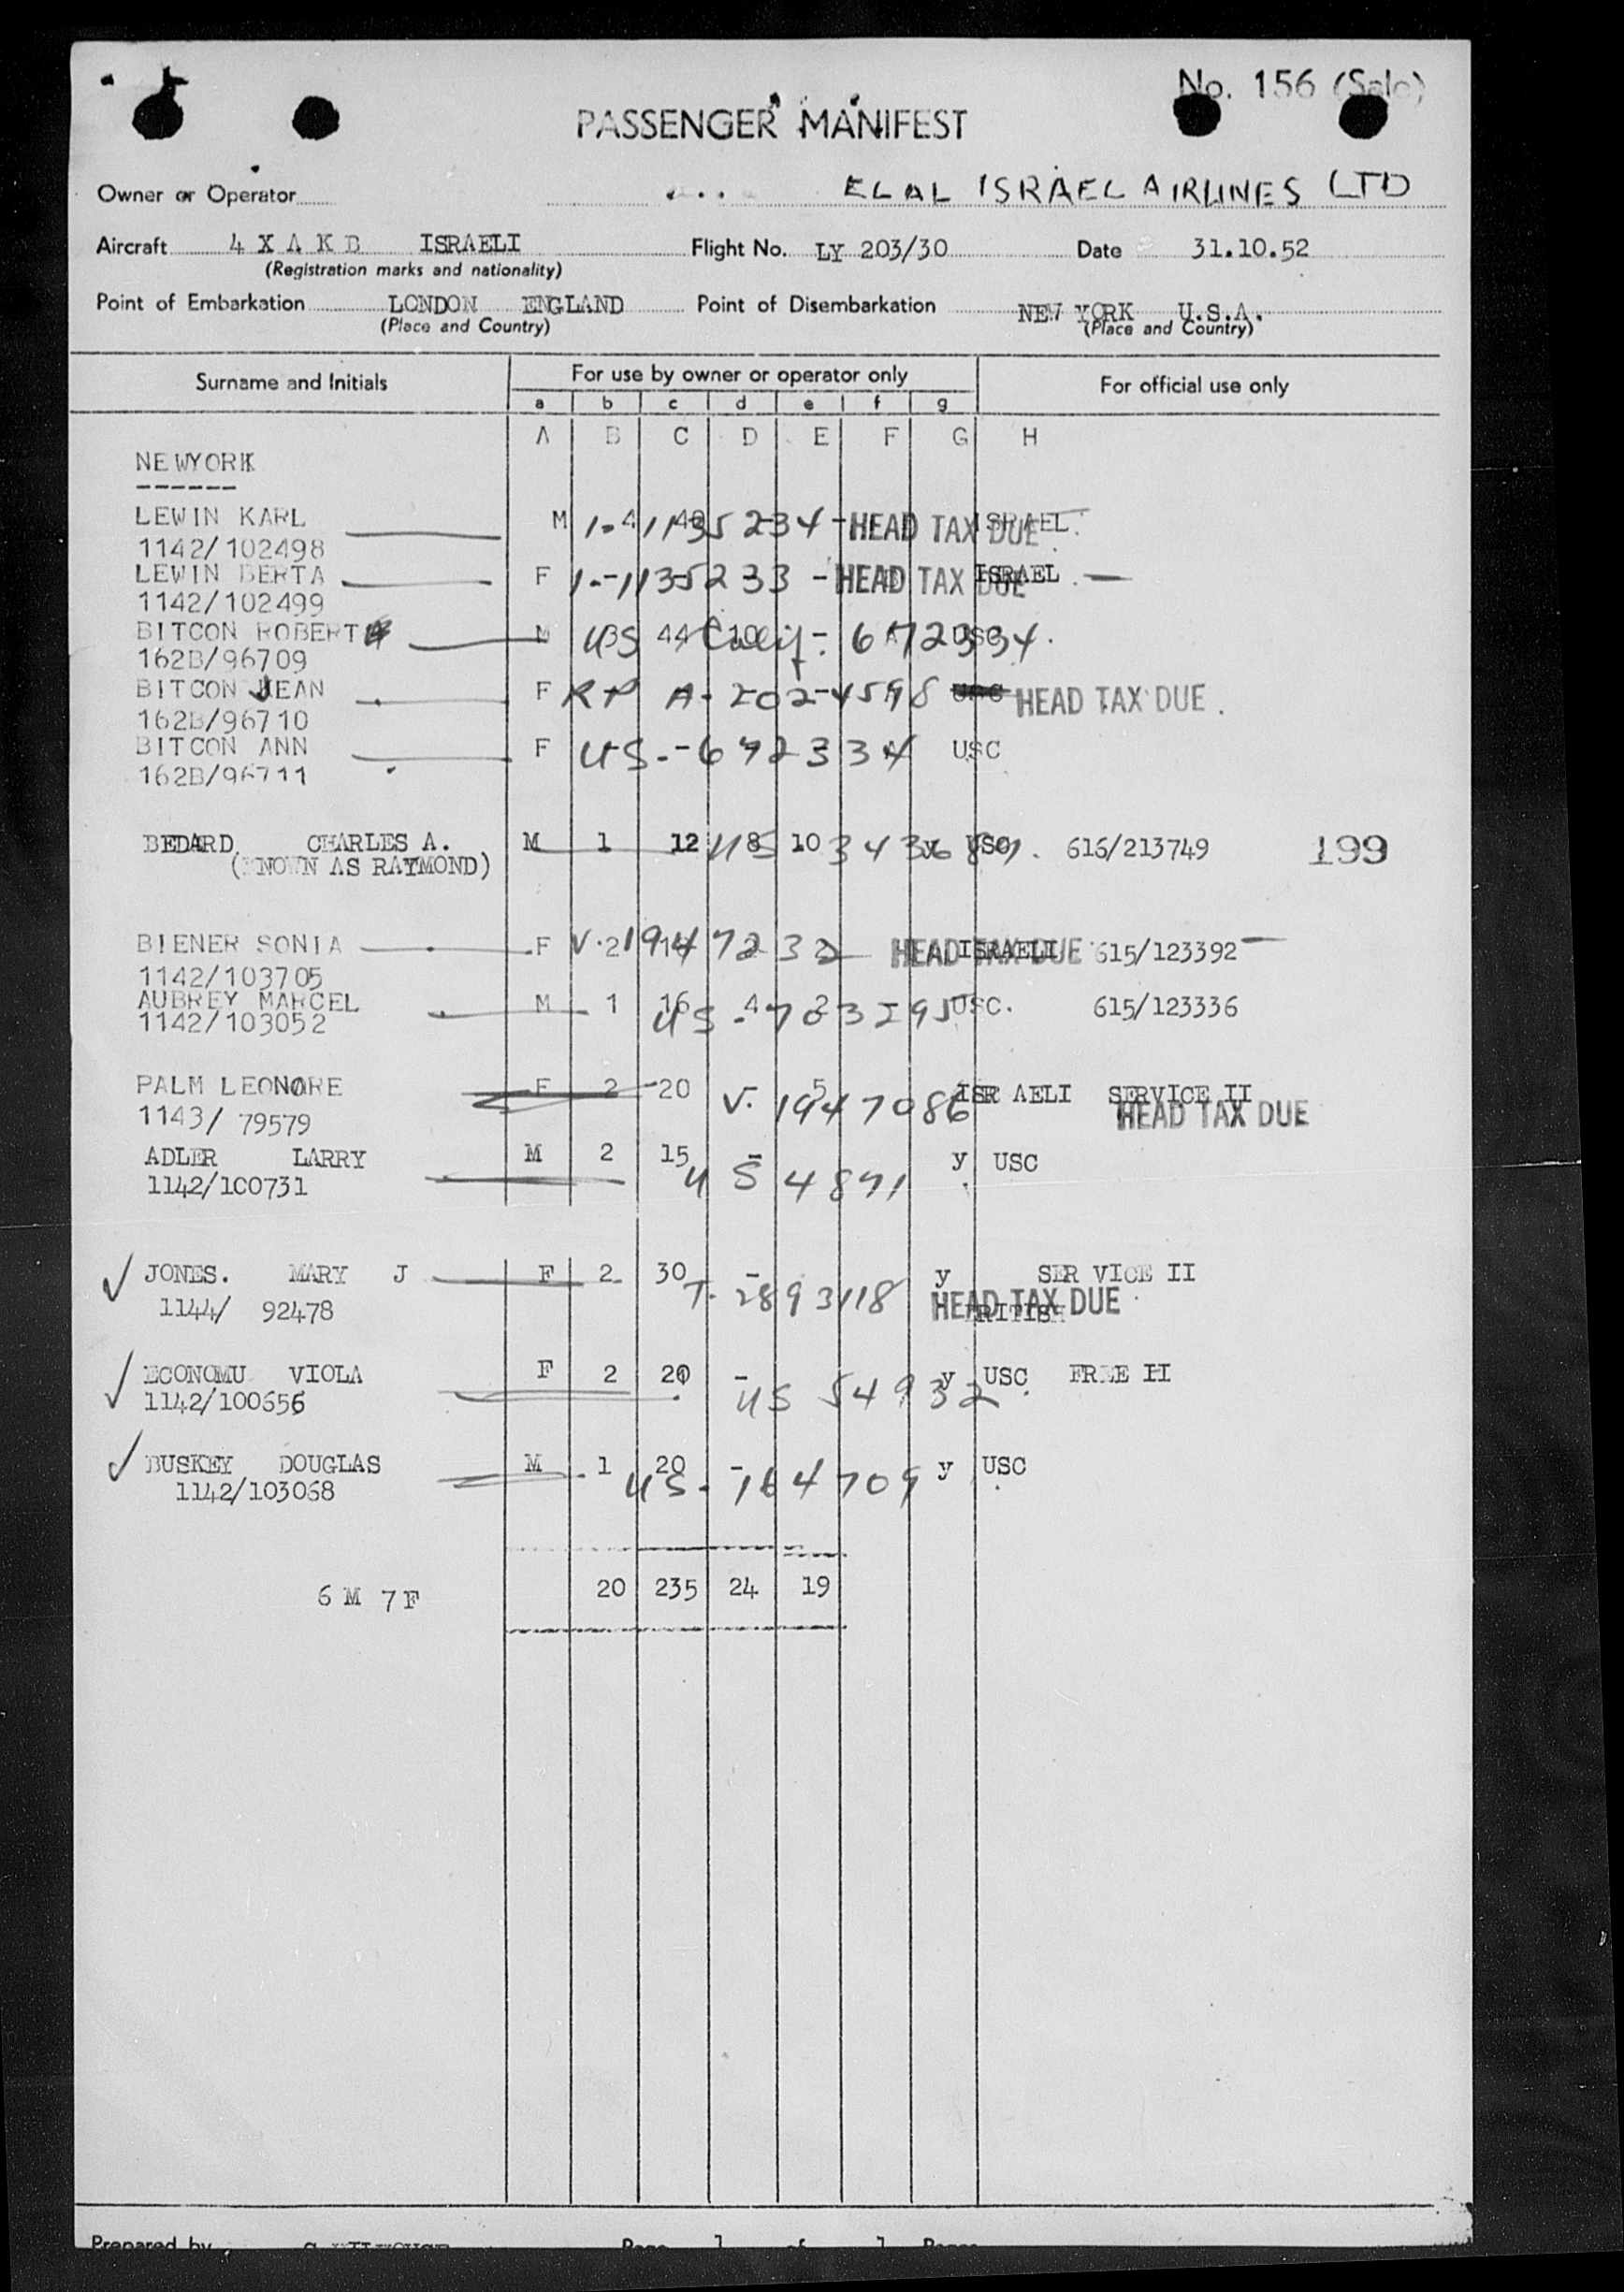 No. 156 (Sale)
PASSENGER MANIFEST
Owner or Operator ELAL ISRAEL AIRLINES LTD
Aircraft 4 X A K B ISRAELI Flight No. LY 203/30 Date 31.10.52
(Registration marks and nationality)
Point of Embarkation LONDON ENGLAND Point of Disembarkation NEW YORK U.S.A.
(Place and Country) (Place and Country)
Surname and Initials For use by owner or operator only For official use only
a b c d e f g
A B C D E F G H
NEWYORK
------
LEWIN KARL M 1-1135234- HEAD TAX DUE ISRAEL
1142/102498
LEWIN BERTA F 1.-1135233- HEAD TAX DUE ISRAEL
1142/102499
BITCON ROBERT M US 44 10 672334. USC
162B/96709
BITCON JEAN F RP A-202-4598 HEAD TAX DUE
162B/96710
BITCON ANN F US.-672334 USC
162B/96711
BEDARD CHARLES A. M 1 12 8 10 US y USC 616/213749 199
(KNOWN AS RAYMOND)
BIENER SONIA F 2 V.1947232 HEAD TAX DUE ISRAELI 615/123392
1142/103705
AUBREY MARCEL M 1 16 4 2 US-703295 USC. 615/123336
1142/103052
PALM LEONORE F 2 20 5 V. 1947086 ISRAELI SERVICE II
1143/ 79579 HEAD TAX DUE
ADLER LARRY M 2 15 - y USC
1142/100731 US 4891
JONES. MARY J F 2 30 - y SERVICE II
1144/ 92478 T. 2893118 HEAD TAX DUE BRITISH
ECONOMU VIOLA F 2 20 - y USC FREE II
1142/100656 US 54932
BUSKEY DOUGLAS M 1 20 - y USC
1142/103068 US-164709
6 M 7 F 20 235 24 19
Prepared by Page 1 of 1 Pages